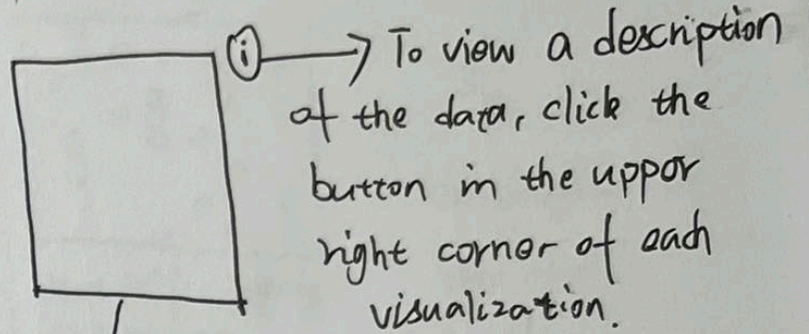 i → To view a description
of the data, click the
button in the uppor
right corner of each
visualization.